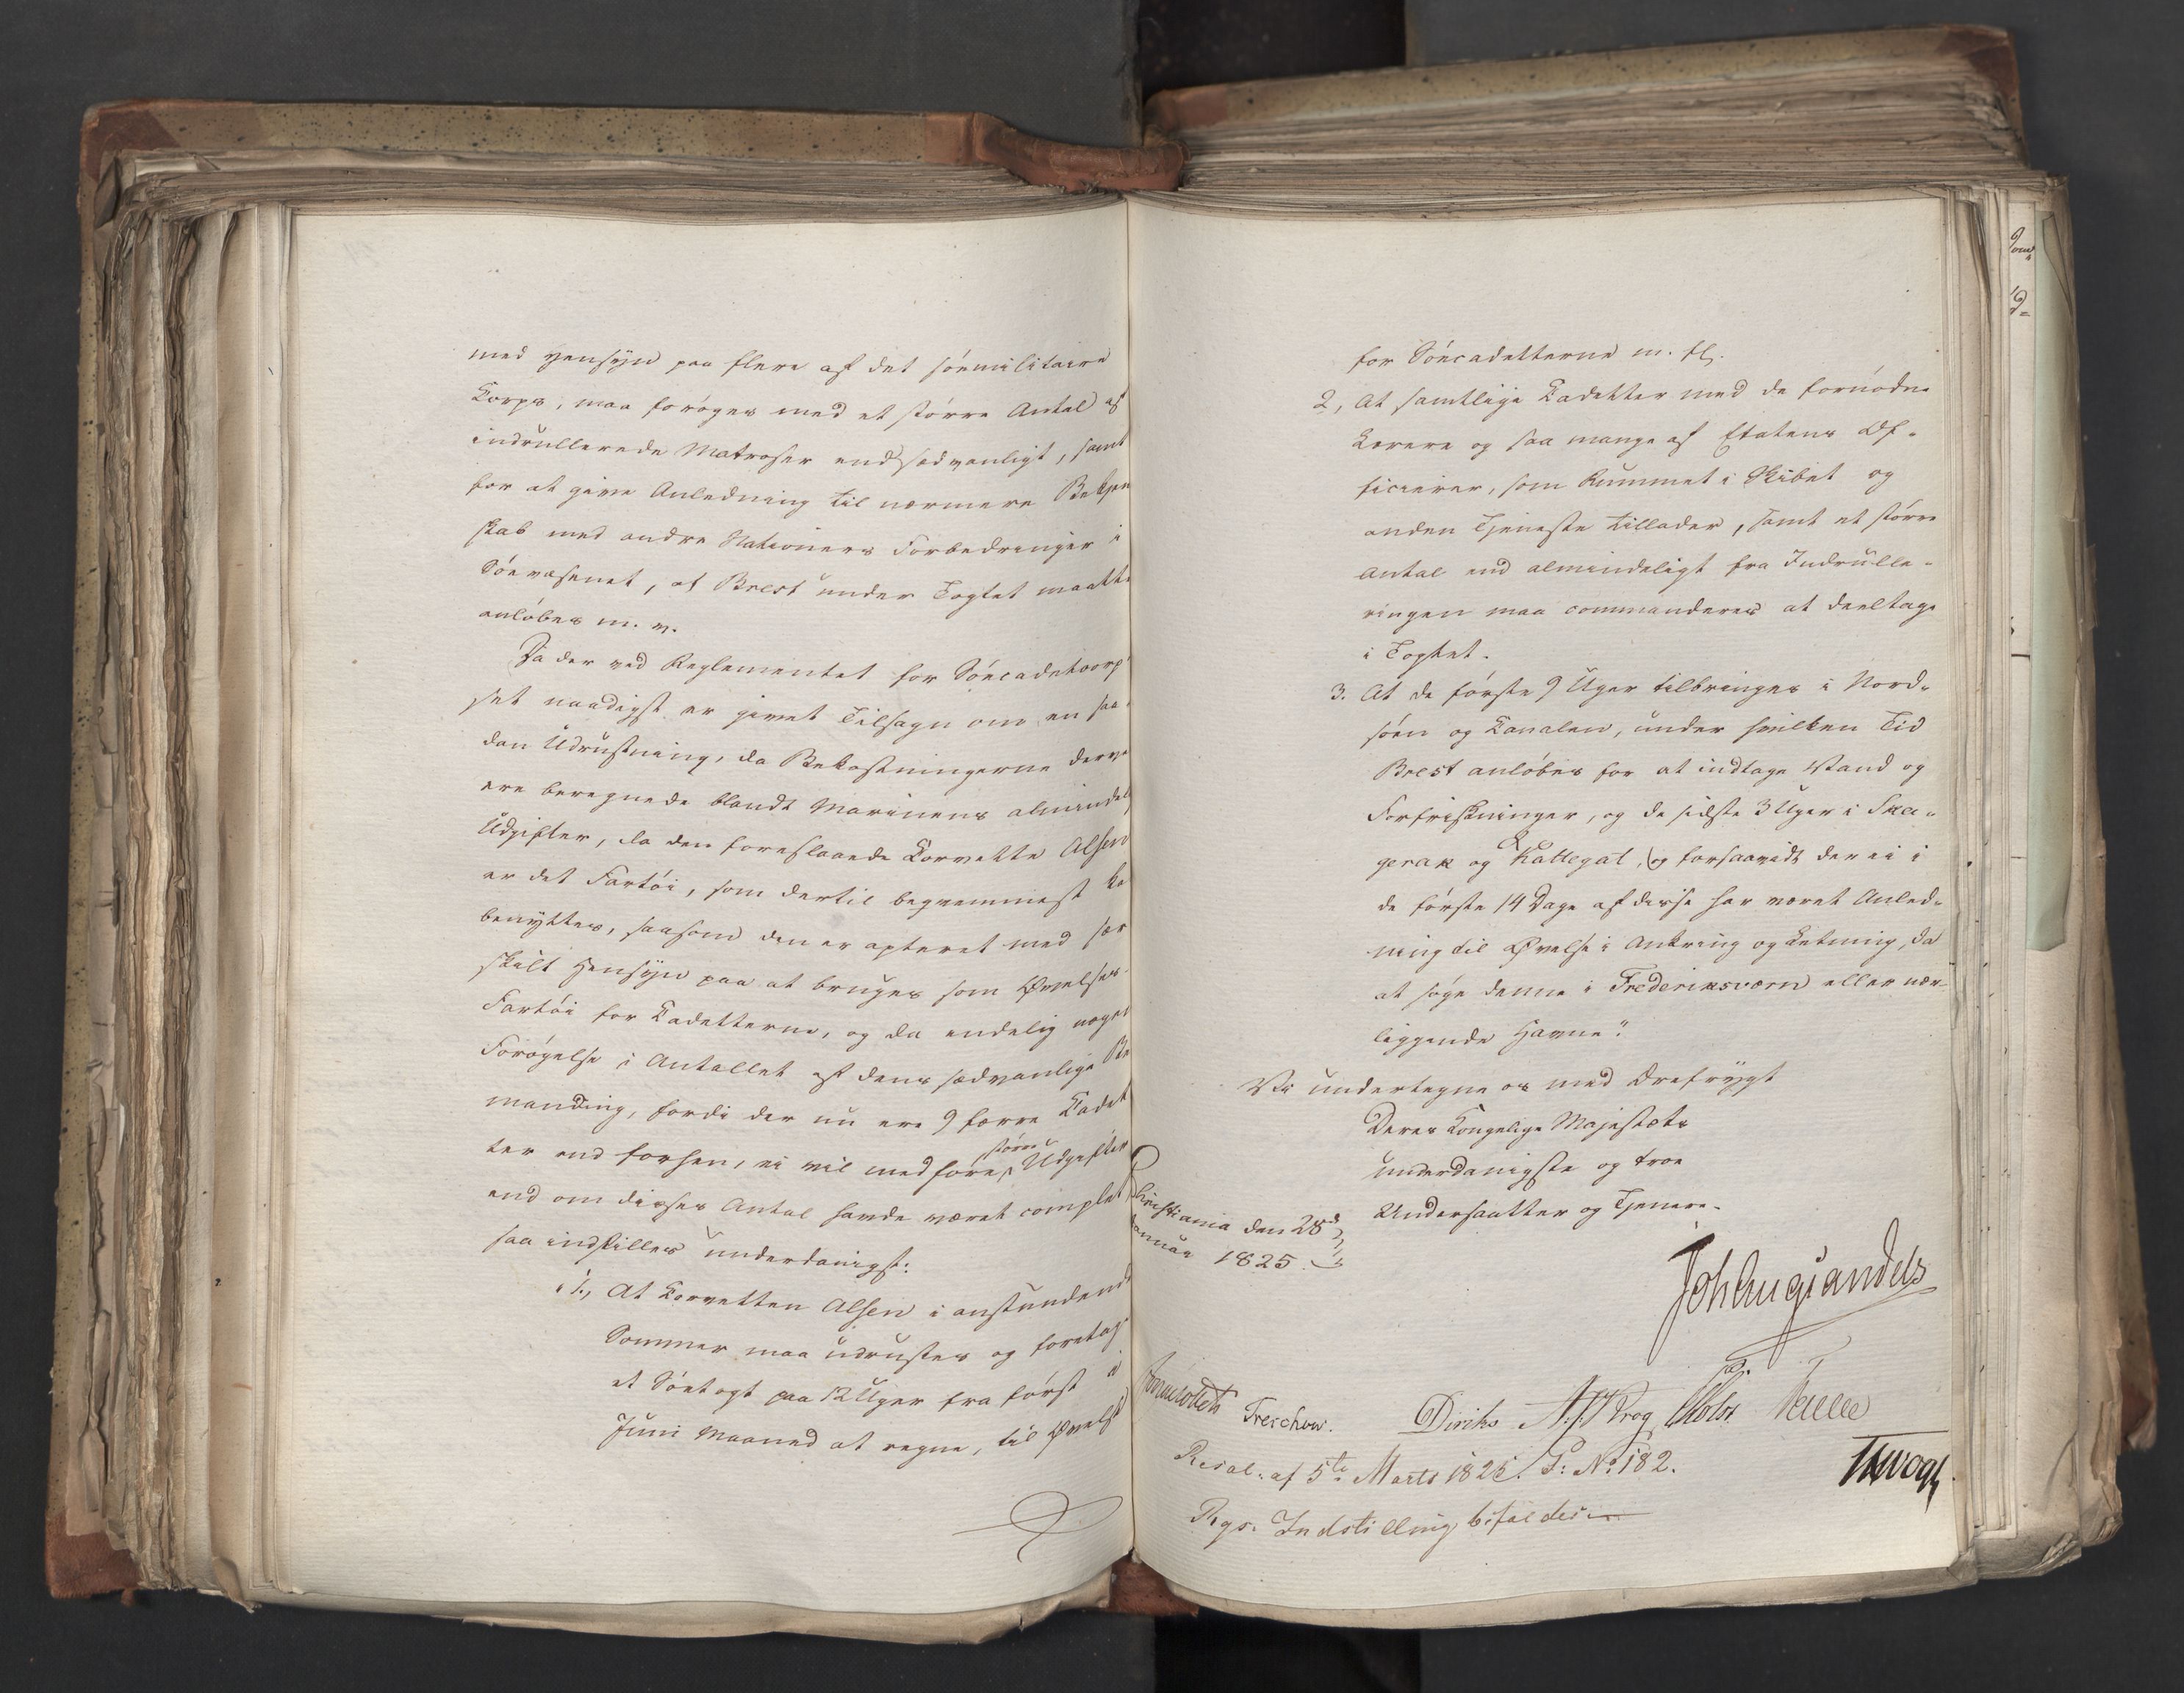 med Hensyn paa flere af det sömilitaire
Corps, maa foröges med et större Antal af
indrullerede Matroser end sædvanligt, samt
for at give Anledning til nærmere Bekjen
skab med andre Nationers Forbedringer i
Söevæsenet, at Brest under Togtet maatte
anlöbes m. v.
Da der ved Reglementet for Söecadetcorp
set naadigst er givet Tilsagn om en saa-
dan Udrustning, da Bekostningerne derve
ere beregnede blandt Marinens almindel
Udgifter, da den foreslaaede Corvette Alsen
er det Fartöi, som dertil beqvemmest ka
benyttes, saasom den er apteret med sær
skilt Hensyn paa at bruges som Övelses-
Fartöi for Cadetterne, og da endelig nogen
Forögelse i Antallet af dens sædvanlige Be
manding, fordi der nu ere 9 færre Cadet
ter end forhen, ei vil medföre större Udgifter
end om disses Antal havde været complet
saa indstilles underdanigst:
"1, At Corvetten Alsen i anstundende
Sommer maa udrustes og foretage
et Söetogt paa 12 Uger fra först i
Juni Maaned at regne, til Övelse
for Söecadetterne m. fl.
2, At samtlige Cadetter med de fornödne
Lærere og saa mange af Etatens Of-
ficierer, som Rummet i Skibet og
anden Tjeneste tillader, samt et större
Antal end almindeligt fra Indrulle-
ringen maa commanderes at deeltage
i Togtet.
3. At de förste 9 Uger tilbringes i Nord-
söen og Canalen, under hvilken Tid
Brest anlöbes for at indtage Vand og
Forfriskninger, og de sidste 3 Uger i Ska-
gerak og Kattegat, og forsaavidt der ei i
de förste 14 Dage af disse har været Anled-
ning til Övelse i Ankring og Letning, da
at söge denne i Frederiksværn eller nær-
liggende Havne".
Vi undertegne os med Ærefrygt
Deres Kongelige Majestæts
underdanigste og troe
Undersaatter og Tjenere.
Christiania den 28d
Januar 1825.
Joh Aug Sandels
Sommerhielm Treschow. Diriks Krog Holst Fasting
Resol: af 5te Marts 1825. P: No 182.
JHVogt
Rgs. Indstilling bifaldes.